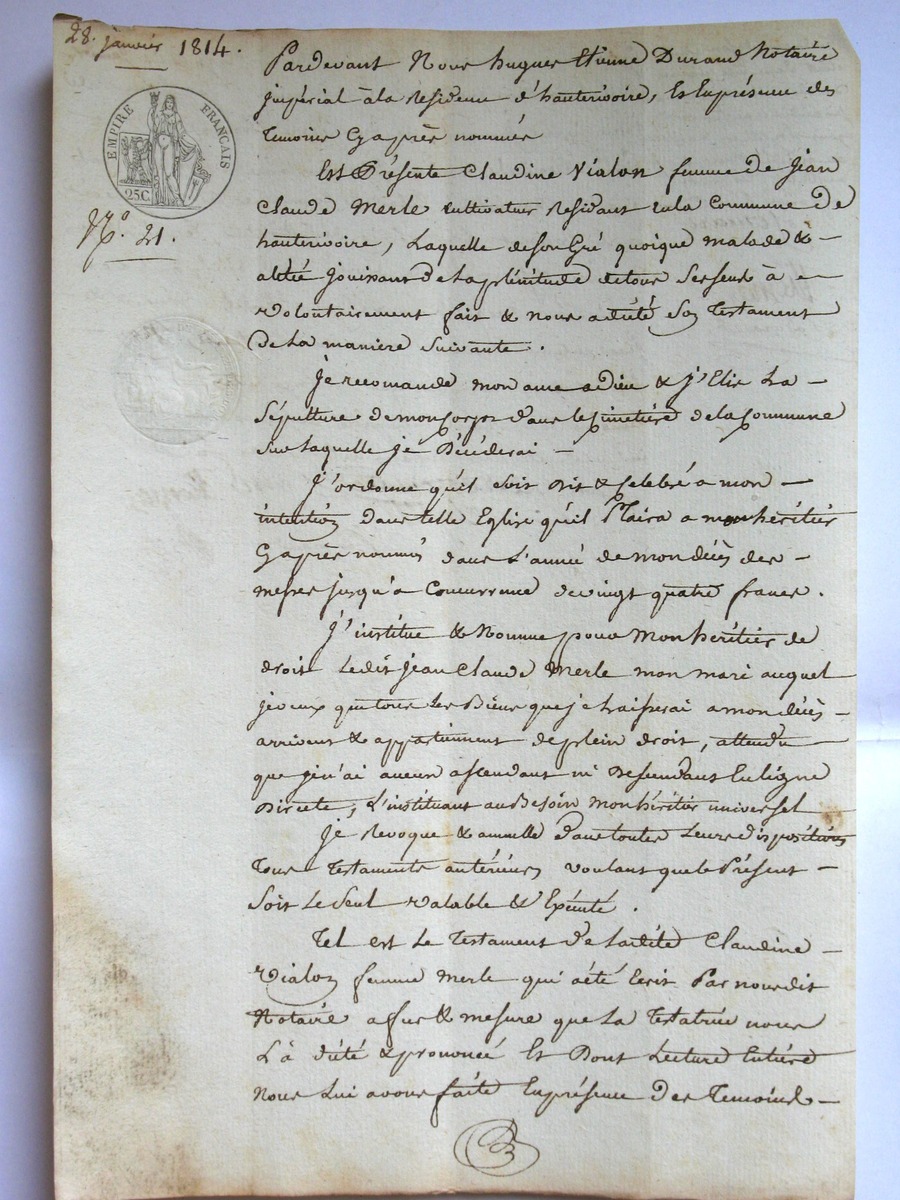 28. janvier 1814.
EMPIRE FRANÇAIS
25C.
N.º 21.
Pardevant Nous hugues Etienne Durand Notaire
Impérial à la Residence d'hauterivoire, Et Enprésence des
Temoins Cyaprès nommés
Est Présente Claudine Vialon femme de Jean
Claude Merle cultivateur Residant enla Commune De
hauterivoire, Laquelle deson Gré quoique malade &
alitée jouissant De la plénitude detous Ses sens à
volontairement fait & nous adicté son Testament
De la maniere Suivante.
Je recomande mon ame a dieu & j'Elis La
Sépulture demon Corps dans le Cimetière de la Commune
Sur Laquelle je Décéderai
J'ordonne qu'il soit dit & Celebré a mon
intention dans telle Eglise qu'il Plaira a mon héritier
Cyaprès nommé dans L'année de mon décès des
messes jusqu'à Concurrance devingt quatre francs.
J'institue & Nomme pour Mon héritier de
droit Ledit Jean Claude Merle mon mari auquel
jeveux que tous Les Biens que je Laisserai a mon décès
arrivent & appartiennent deplein droit, attendu
que jen'ai aucun ascendant ni Descendant En Ligne
Directe, L'instituant au Besoin mon héritier universel
Je Revoque & annulle dans toutes Leurs dispositions
Tous Testaments antérieurs voulant que le Présent
Soit Le Seul valable & Exécuté.
Tel est Le Testament De Ladite Claudine
Vialon femme Merle qui aété Ecrit Par nousdit
Notaire a fur & mesure que La Testatrice nous
L'à dicté & prononcé Et Dont Lecture Entière
Nous Lui avons faite Enprésence Des Temoins